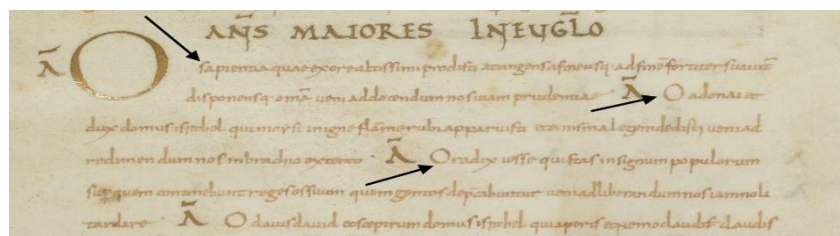 AN̄S MAIORES IN EVGL̄O
Ā O sapientia quae exore altissimi prodisti attingens afineusq· adfinē fortiter suavit̄
disponensq· om̄a veni addocendum nos viam prudentiae · Ā O adonai et
dux domus isrhel qui moysi inigne flam̄e rubi apparuisti et ei insina legem dedisti veni ad
redimendum nos inbrachio extento · Ā O radix iesse qui stas insignum populorum
super quem continebunt reges ossuum quem gentes dep̄cabuntur veni adliberandum nos iam noli
tardare · Ā O clavis david et sceptrum domus isrhel qui aperis et nemo claudit claudis